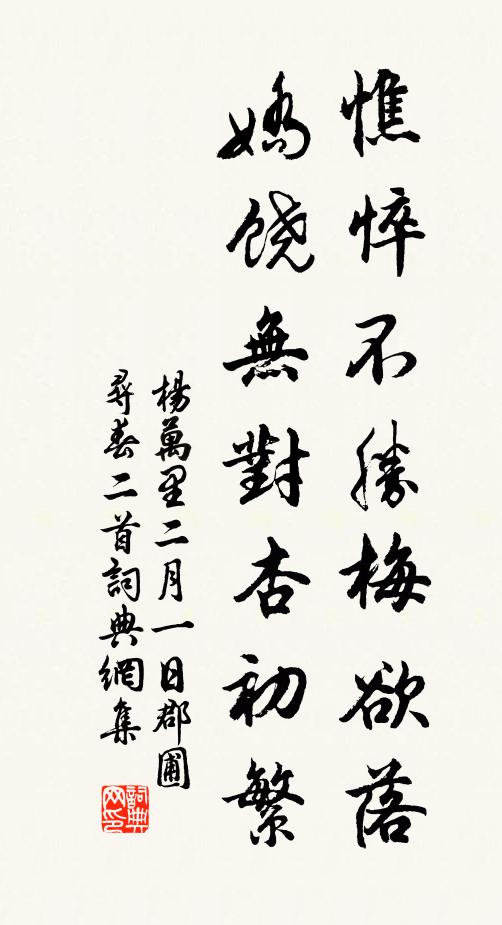 憔悴不勝梅欲落
嬌饒無對杏初繁
楊萬里二月一日郡圃
尋春二首詞典網集
詞典
网印